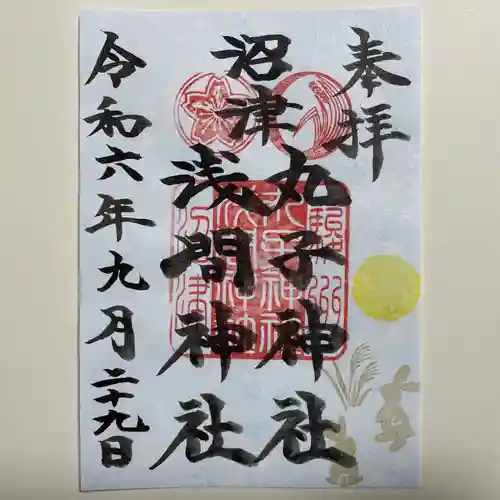 奉拝
沼津
丸子神社
浅間神社
令和六年九月二十九日